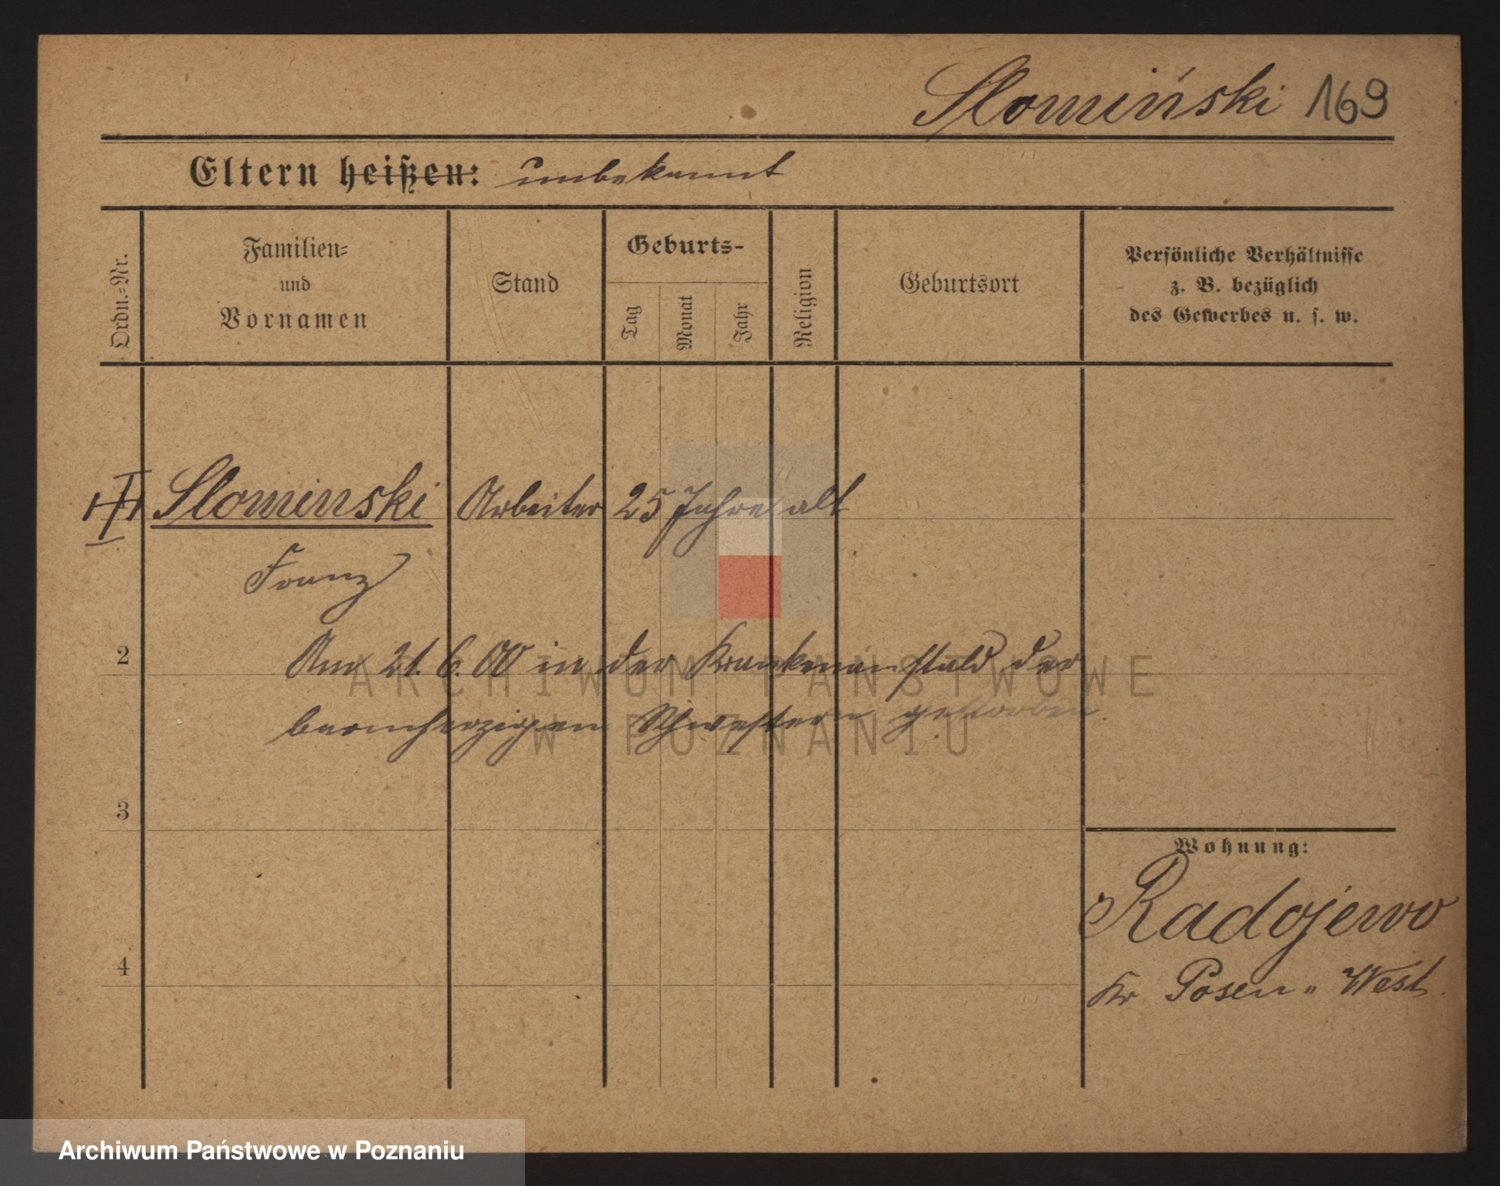 Slomiński 169
Eltern heißen: unbekannt
Ordn.-Nr.
Familien-
und
Vornamen
Stand
Geburts-
Tag
Monat
Jahr
Religion
Geburtsort
Persönliche Verhältnisse
z. B. bezüglich
des Gewerbes u. s. w.
Slominski Arbeiter 25 Jahre alt
Franz
2
Am 21. 6. 00 in der Krankenanstald der
barmherzigen Schwestern gestorben
3
4
Wohnung:
Radojewo
Kr Posen-West.
ARCHIWUM PAŃSTWOWE
W POZNANIU
Archiwum Państwowe w Poznaniu